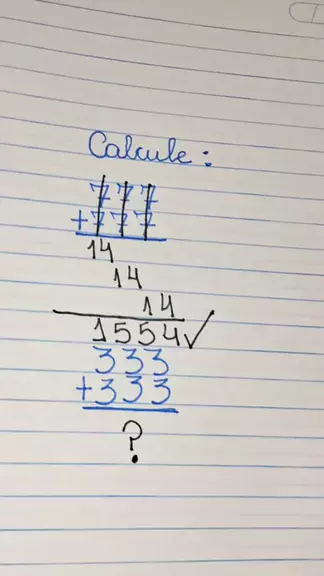 Calcule:
777
+777
14
14
14
1554✓
333
+333
?